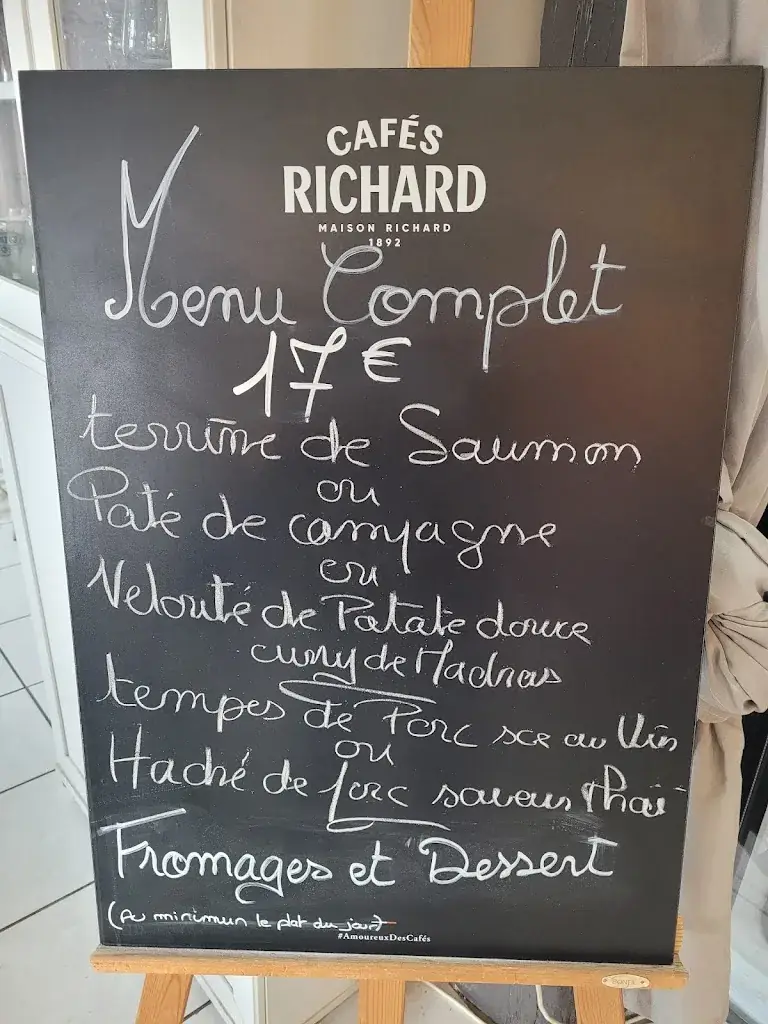 CAFÉS
RICHARD
MAISON RICHARD
1892
Menu Complet
17€
terrine de Saumon
ou
Paté de campagne
ou
Velouté de Patate douce
curry de Madras
tempes de Porc sce au Vin
ou
Haché de Porc saveur thaï
Fromages et Dessert
(Au minimum le plat du jour)
#AmoureuxDesCafés